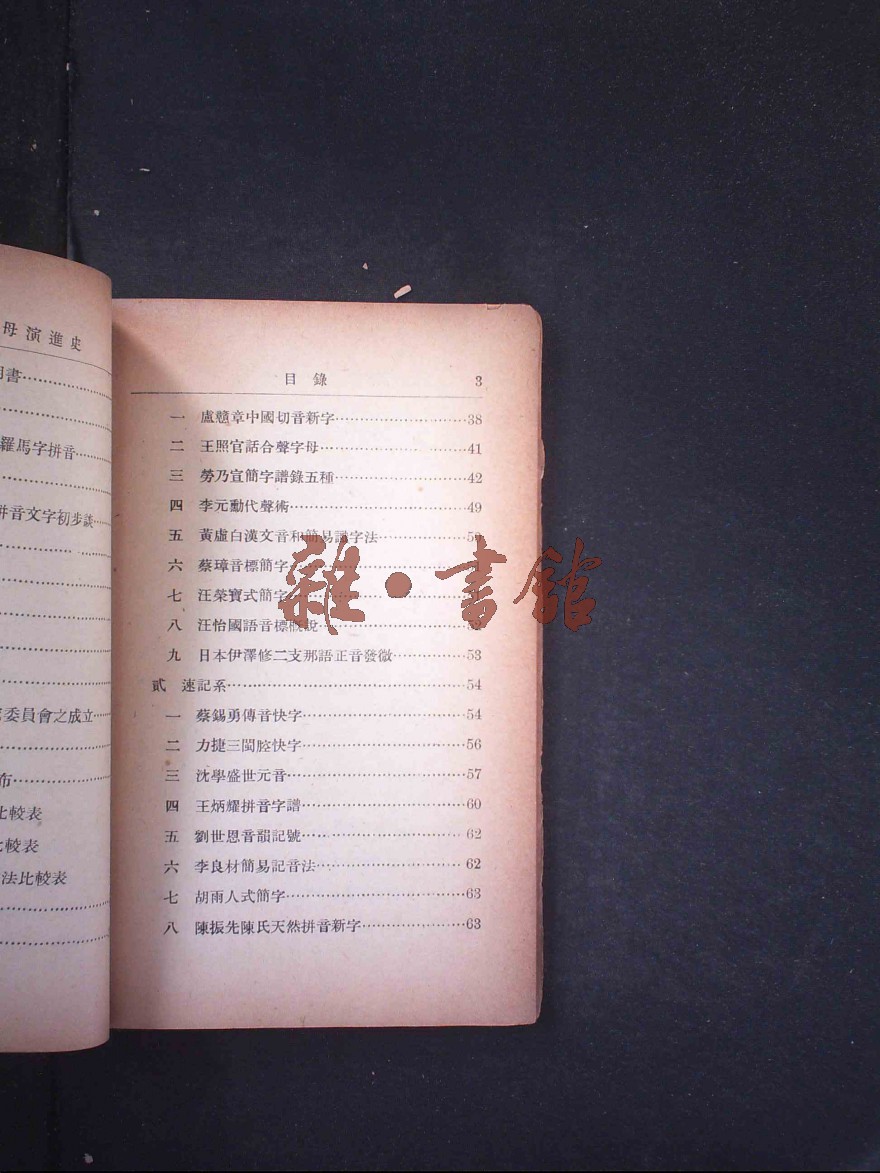 母演進史
用書
羅馬字拼音
拼音文字初步談
委員會之成立
布
比較表
比較表
法比較表
目錄 3
一 盧戇章中國切音新字 38
二 王照官話合聲字母 41
三 勞乃宣簡字譜錄五種 42
四 李元勳代聲術 49
五 黃虛白漢文音和簡易識字法 50
六 蔡璋音標簡字
七 汪榮寶式簡字
八 汪怡國語音標概說 52
九 日本伊澤修二支那語正音發微 53
貳 速記系 54
一 蔡錫勇傳音快字 54
二 力捷三閩腔快字 56
三 沈學盛世元音 57
四 王炳耀拼音字譜 60
五 劉世恩音韻記號 62
六 李良材簡易記音法 62
七 胡雨人式簡字 63
八 陳振先陳氏天然拼音新字 63
雜·書館